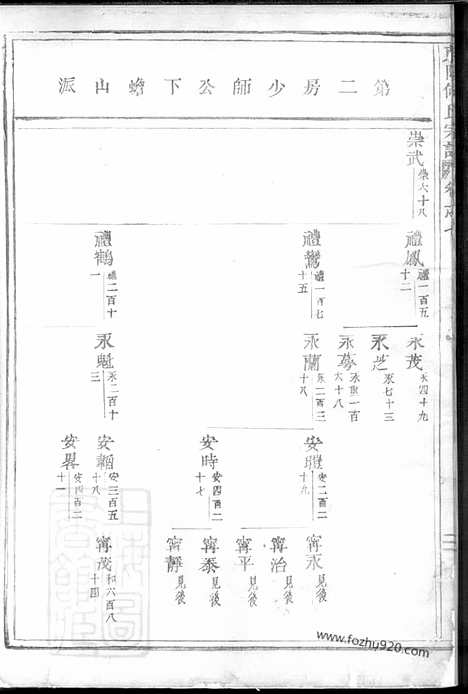 第二房少師公下蟾山派
崇武 崇六十八
禮鳳 禮一百五十二
禮鸞 禮一百七十五
禮鶴 禮二百十一
永茂 永四十九
永芝 永七十三
永蓁 永一百六十八
永蘭 永二百三十八
永魁 永二百十三
安瑆 安二百二十九
安時 安四百二十七
安韜 安三百五十八
安畧 安四百二十一
寗永 見後
寗治 見後
寗平 見後
寗泰 見後
寗靜 見後
寗茂 和六百八十四
www.fozhu920.com